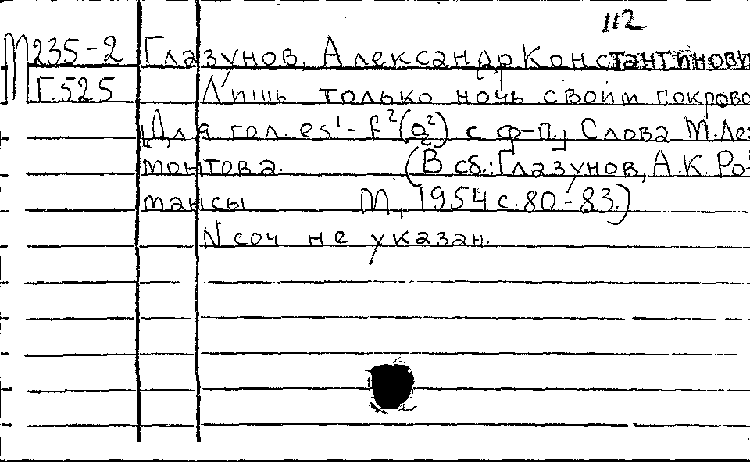 112
М235-2 Глазунов, Александр Константинови
Г.525 Лишь только ночь своим покрово
Для гол. es¹-f²(a²) с ф-п., Слова М. Лер
монтова. (В сб.: Глазунов, А.К. Ро
мансы М., 1954 с. 80-83.)
N соч не указан.